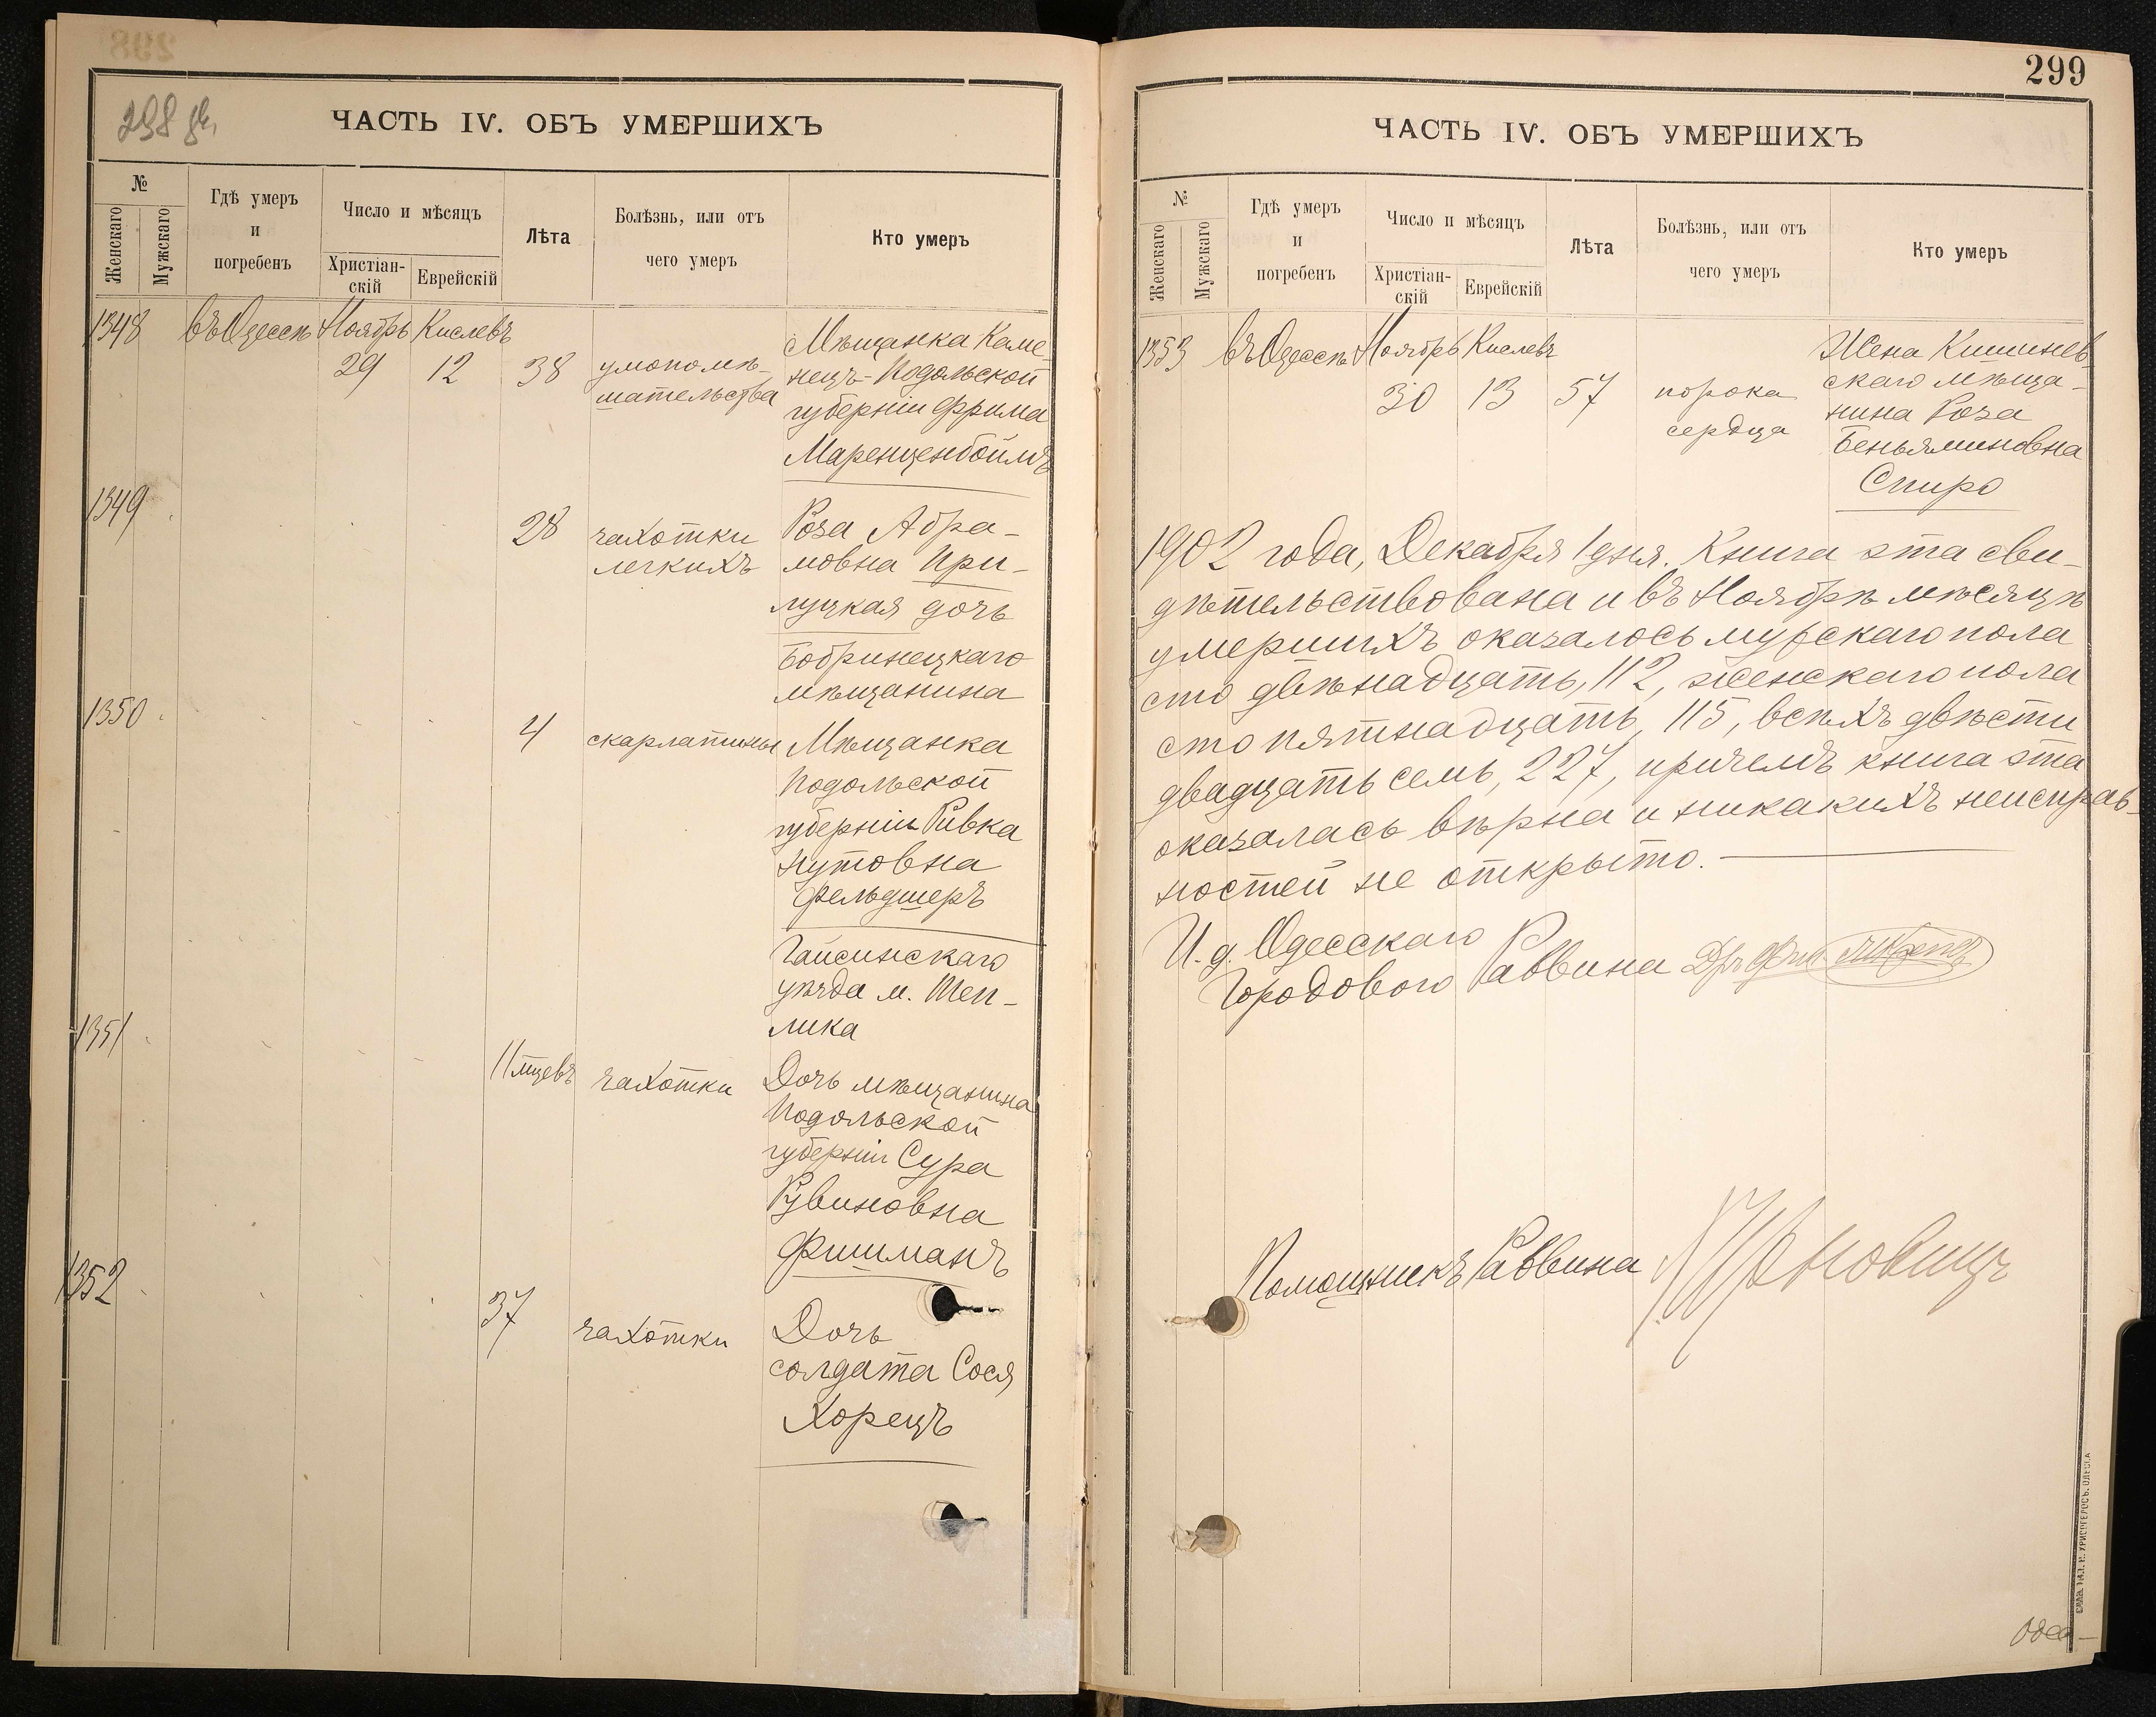 298
298 об.
ЧАСТЬ IV. ОБЪ УМЕРШИХЪ
№
Женскаго
Мужскаго
Гдѣ умеръ
и
погребенъ
Число и мѣсяцъ
Христіан-
скій
Еврейскій
Лѣта
Болѣзнь, или отъ
чего умеръ
Кто умеръ
1348 въ Одессѣ Ноябрь Кислевъ
29 12 38
умопомѣ-
шательства
Мѣщанка Каме-
нецъ-Подольской
губерніи Фрима
Маренценбоймъ
1349
28
чахотки
легкихъ
Роза Абра-
мовна При-
луцкая дочь
Бобринецкаго
мѣщанина
1350
4
скарлатины
Мѣщанка
Подольской
губерніи Ривка
Нутовна
Фельдшеръ
Гайсинскаго
уѣзда м. Теп-
лика
1351
11 мцевъ
чахотки
Дочь мѣщанина
Подольской
губерніи Сура
Рувиновна
Фишманъ
1352
37
чахотки
Дочь
солдата Сося
Хорецъ
299
ЧАСТЬ IV. ОБЪ УМЕРШИХЪ
№
Женскаго
Мужскаго
Гдѣ умеръ
и
погребенъ
Число и мѣсяцъ
Христіан-
скій
Еврейскій
Лѣта
Болѣзнь, или отъ
чего умеръ
Кто умеръ
1353 въ Одессѣ Ноябрь Кислевъ
30 13 57
порока
сердца
Жена Кишинев-
скаго мѣща-
нина Роза
Беньяминовна
Спиро
1902 года, Декабря 1 дня. Книга эта сви-
дѣтельствована и въ Ноябрѣ мѣсяцѣ
умершихъ оказалось мужскаго пола
сто двѣнадцать, 112, женскаго пола
сто пятнадцать, 115, всѣхъ двѣсти
двадцать семь, 227, причемъ книга эта
оказалась вѣрна и никакихъ неисправ-
ностей не открыто.
И. д. Одесскаго
Городового Раввина Дръ
Помощникъ Раввина